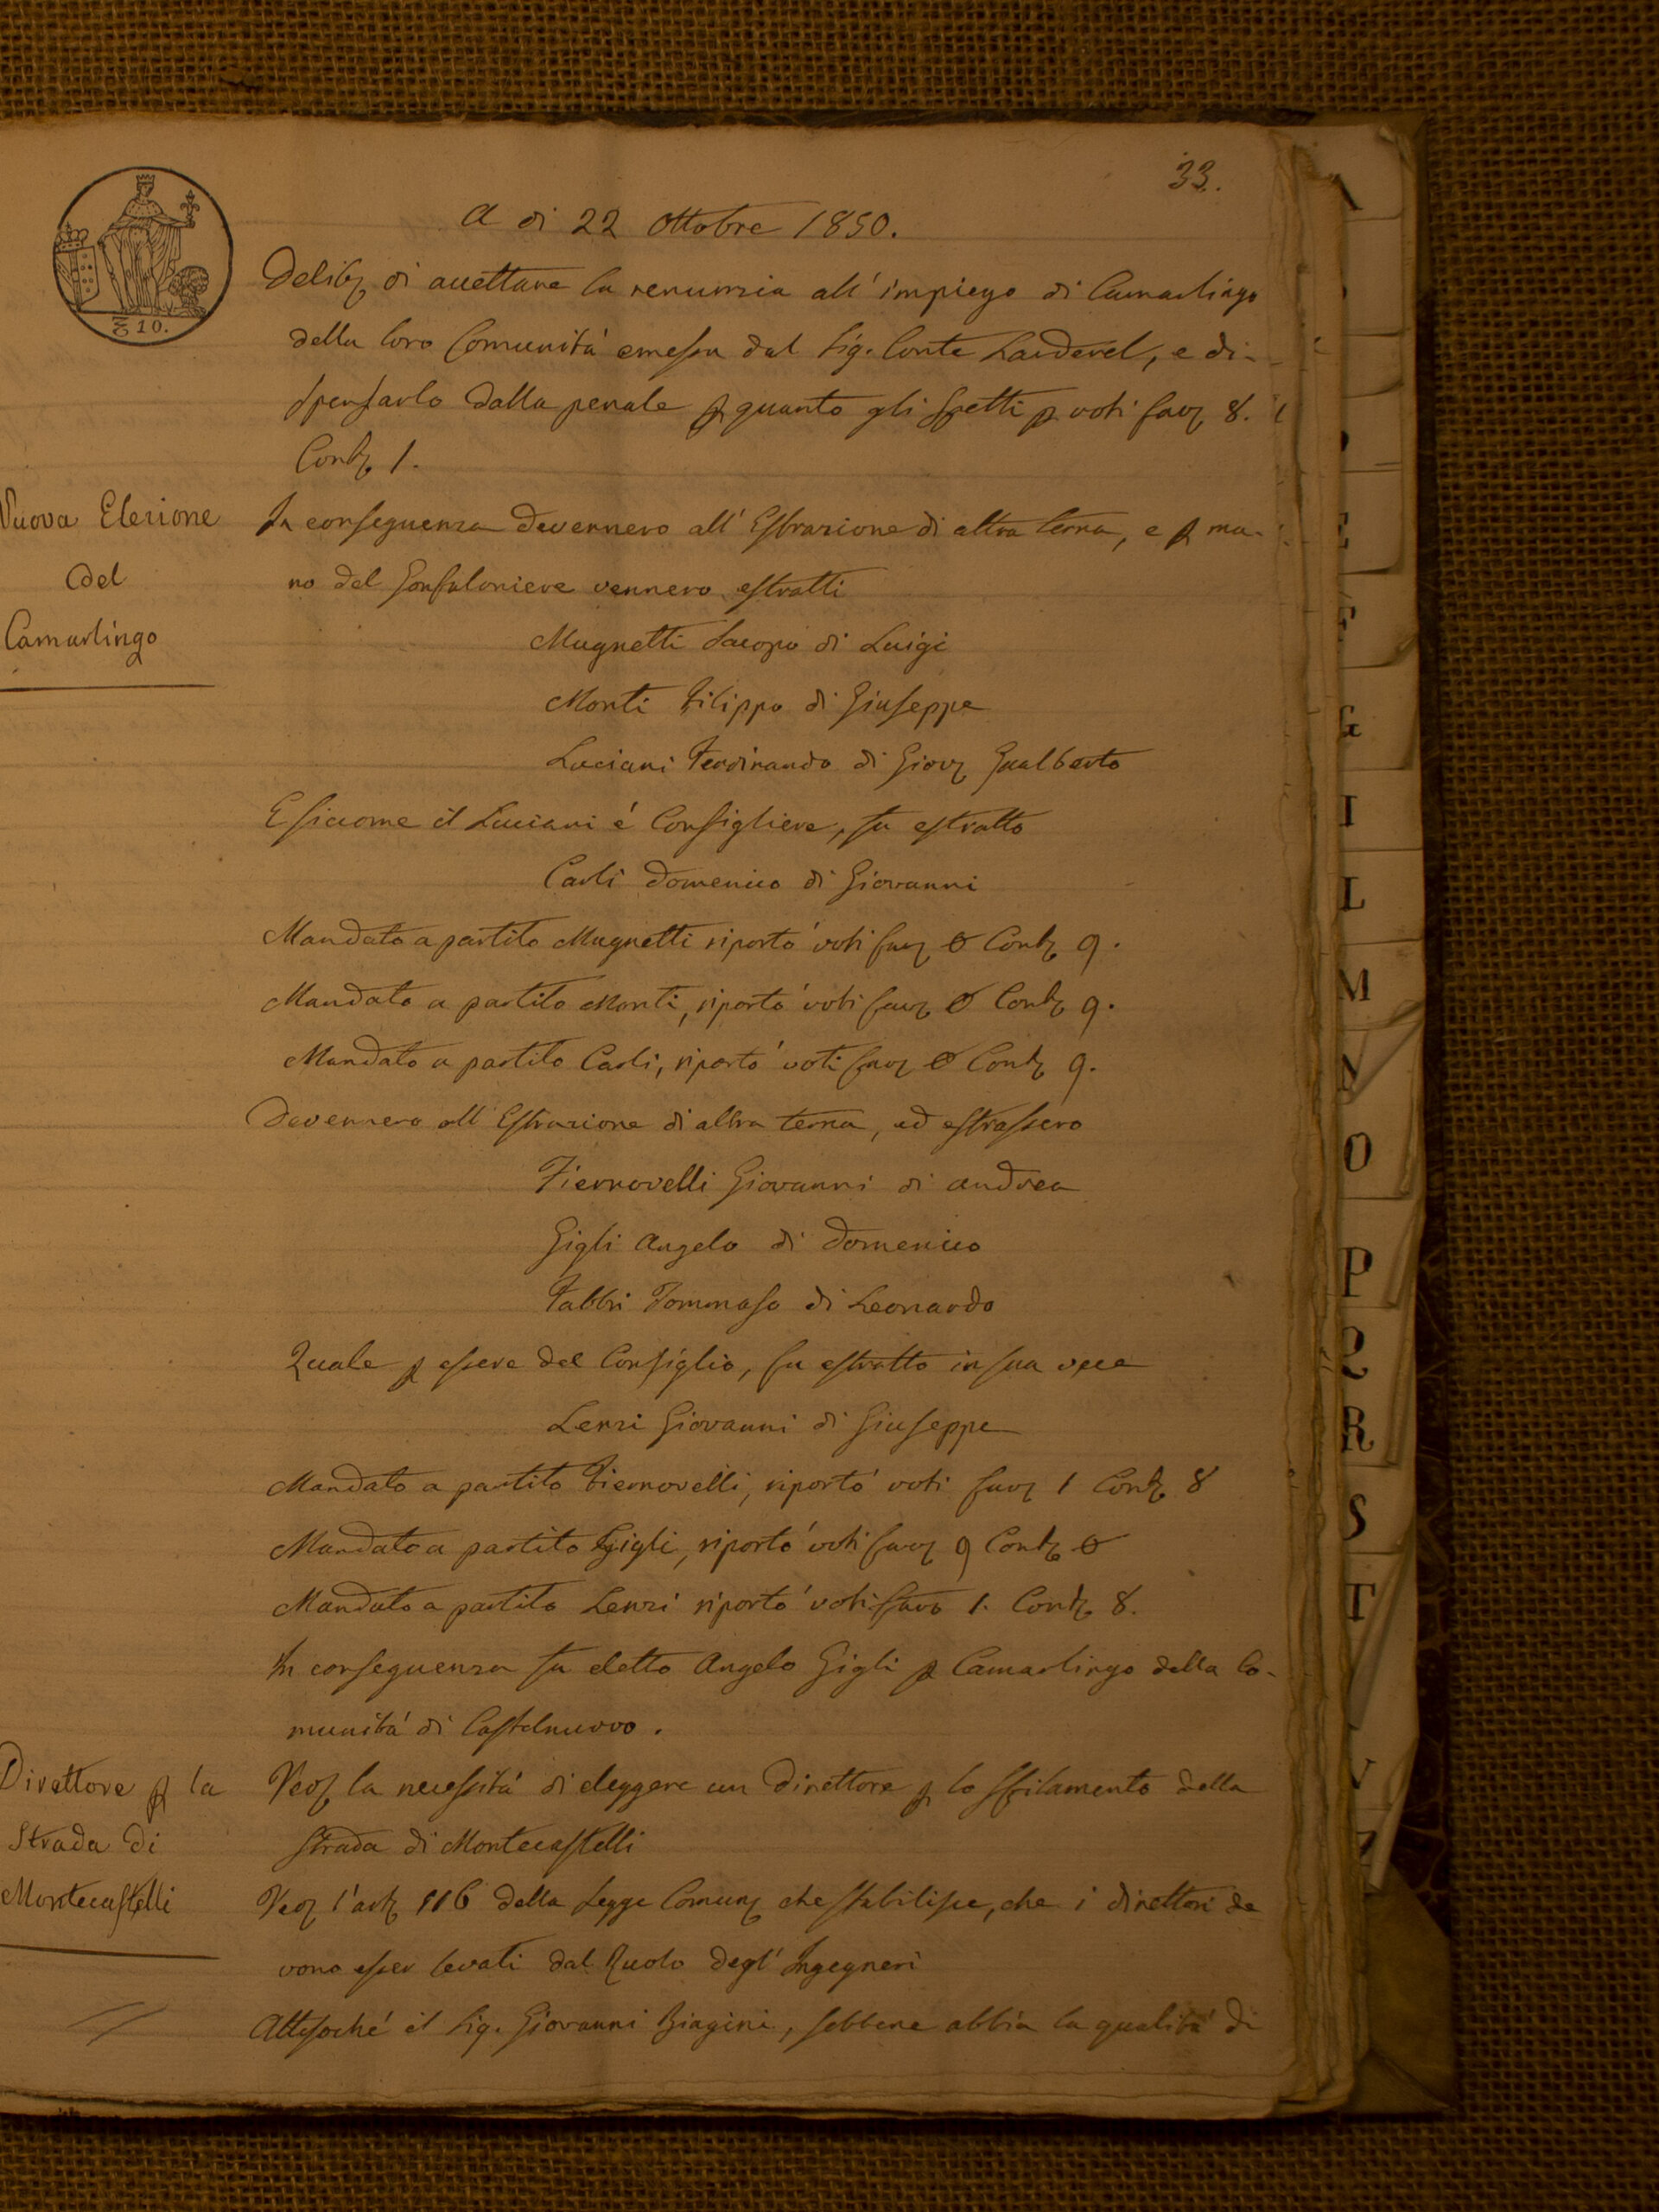 33.
A di 22 Ottobre 1850.
10.
Delib: di accettare la renunzia all' impiego di Camarlingo
della loro Comunità emessa dal Sig. Conte Larderel, e di-
spensarlo dalla penale p quanto gli spetti p voti fav: 8.
Cont: 1.
Nuova Elezione
del
Camarlingo
In conseguenza devennero all' Estrazione di altra terna, e p ma-
no del Gonfaloniere vennero estratti
Mugnetti Jacopo di Luigi
Monti Filippo di Giuseppe
Luciani Ferdinando di Giov: Gualberto
E siccome il Luciani é Consigliere, fu estratto
Carli Domenico di Giovanni
Mandato a partito Mugnetti riportò voti fav: 0 Cont: 9.
Mandato a partito Monti, riportò voti fav: 0 Cont: 9.
Mandato a partito Carli, riportò voti fav: 0 Cont: 9.
Devennero all' Estrazione di altra terna, ed estrassero
Fiernovelli Giovanni di Andrea
Gigli Angelo di Domenico
Fabbri Tommaso di Leonardo
Quale p essere del Consiglio, fu estratto in sua vece
Lenzi Giovanni di Giuseppe
Mandato a partito Fiernovelli, riportò voti fav: 1 Cont: 8
Mandato a partito Gigli, riportò voti fav: 9 Cont: 0
Mandato a partito Lenzi riportò voti fav: 1. Cont: 8.
In conseguenza fu eletto Angelo Gigli p Camarlingo della Co-
munità di Castelnuovo.
Direttore p la
Strada di
Montecastelli
Ved: la necessità di eleggere un Direttore p lo sfilamento della
Strada di Montecastelli
Ved: l'art: 116 della Legge Comun: che stabilisce, che i direttori de
vono esser levati dal Ruolo degl' Ingegneri
Attesoché il Sig. Giovanni Biagini, sebbene abbia la qualità di
A
E
F
G
I
L
M
N
O
P
Q
R
S
T
V
Z